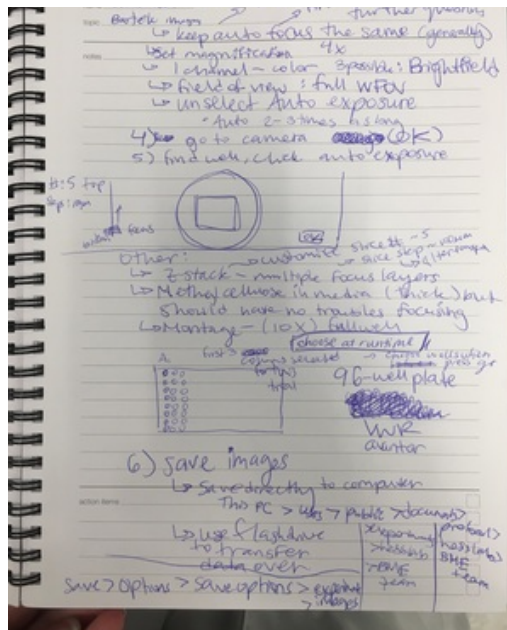 topic Bartek images
further questions
↳ keep auto focus the same (generally)
notes ↳ Set magnification 4x
↳ 1 channel - color 3 possible: Brightfield
↳ field of view: full WFOV
↳ unselect Auto exposure
• Auto 2-3 times as long
4) go to camera (OK)
5) find well, click auto exposure
top
bottom focus
OK
Other: customize slice # ~ 5
↳ slice step
↳ Z stack - multiple focus layers
↳ Methylcellulose in media (thick) but
should have no troubles focusing
↳ Montage - (10X) full well
choose at runtime
first
A.
columns selected
for this
trial
96-well plate
VWR
avantor
6) save images
↳ Save directly to computer
action items
This PC > users > public > documents >
↳ use flashdrive
to transfer
data over
experiments
> BME
team
protocols >
BME
team
Save > Options > Save options > experiment
> images